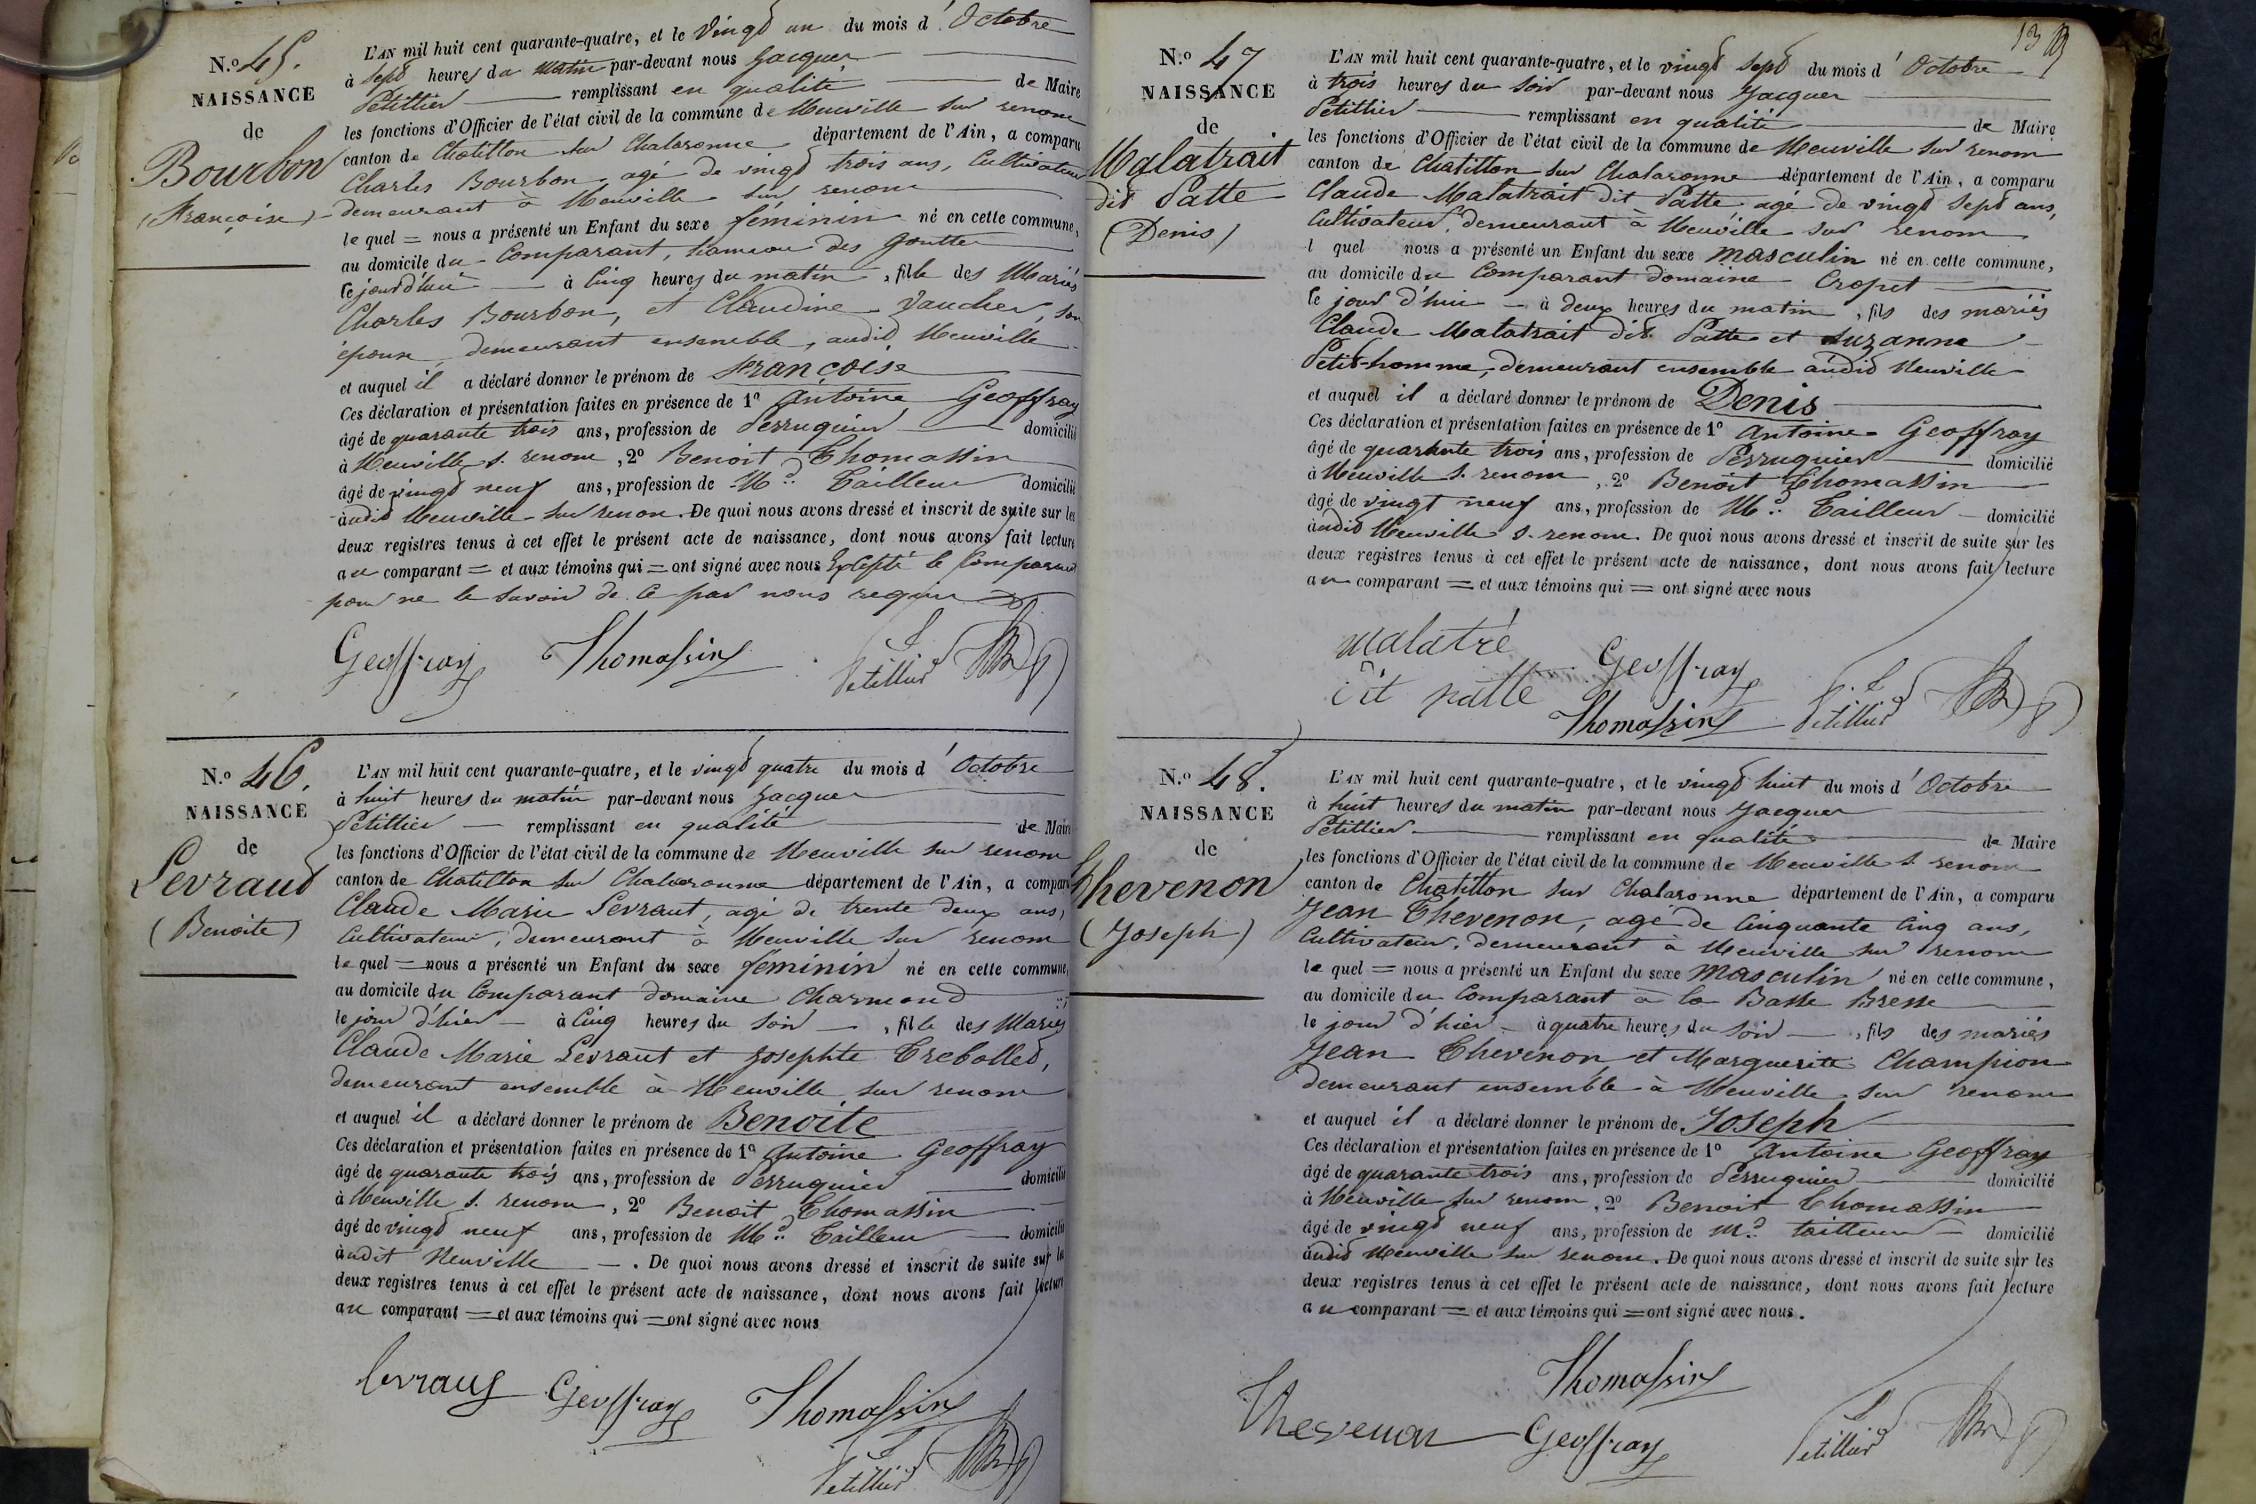 N.º 45.
NAISSANCE
de
Bourbon
(Françoise)
L'AN mil huit cent quarante-quatre, et le vingt un du mois d'Octobre
à sept heures du matin par-devant nous Jacques
Petillier remplissant en qualité de Maire
les fonctions d'Officier de l'état civil de la commune de Neuville sur renom
canton de Chatillon sur Chalaronne département de l'Ain, a comparu
Charles Bourbon, agé de vingt trois ans, Cultivateur
demeurant à Neuville sur renom
le quel = nous a présenté un Enfant du sexe féminin né en cette commune,
au domicile du Comparant, hameau des Goutte
le jourd'hui à Cinq heures du matin, fille des Mariés
Charles Bourbon, et Claudine Vaucher, son
épouse demeurant ensemble, audit Neuville
et auquel il a déclaré donner le prénom de Françoise
Ces déclaration et présentation faites en présence de 1º Antoine Geoffray
âgé de quarante trois ans, profession de Perruquier domicilié
à Neuville s. renom, 2º Benoit Thomassin
âgé de vingt neuf ans, profession de Md. Tailleur domicilié
audit Neuville sur renom. De quoi nous avons dressé et inscrit de suite sur les
deux registres tenus à cet effet le présent acte de naissance, dont nous avons fait lecture
au comparant = et aux témoins qui = ont signé avec nous Excepté le Comparant
pour ne le savoir de ce par nous requis
Geoffray Thomassin Petillier
N.º 46.
NAISSANCE
de
Levraut
(Benoite)
L'AN mil huit cent quarante-quatre, et le vingt quatre du mois d'Octobre
à huit heures du matin par-devant nous Jacques
Petillier remplissant en qualité de Maire
les fonctions d'Officier de l'état civil de la commune de Neuville sur renom
canton de Chatillon sur Chalaronne département de l'Ain, a comparu
Claude Marie Levraut, agé de trente deux ans,
Cultivateur, demeurant à Neuville sur renom
le quel = nous a présenté un Enfant du sexe féminin né en cette commune,
au domicile du Comparant domaine Charmond
le jour d'hier à Cinq heures du soir, fille des Mariés
Claude Marie Levraut et Josephte Trebollet,
demeurant ensemble à Neuville sur renom
et auquel il a déclaré donner le prénom de Benoite
Ces déclaration et présentation faites en présence de 1º Antoine Geoffray
âgé de quarante trois ans, profession de Perruquier domicilié
à Neuville s. renom, 2º Benoit Thomassin
âgé de vingt neuf ans, profession de Md. Tailleur domicilié
audit Neuville. De quoi nous avons dressé et inscrit de suite sur les
deux registres tenus à cet effet le présent acte de naissance, dont nous avons fait lecture
au comparant = et aux témoins qui = ont signé avec nous
levraut Geoffray Thomassin
Petillier
13
N.º 47
NAISSANCE
de
Malatrait
dit Patte
(Denis)
L'AN mil huit cent quarante-quatre, et le vingt sept du mois d'Octobre
à trois heures du soir par-devant nous Jacques
Petillier remplissant en qualité de Maire
les fonctions d'Officier de l'état civil de la commune de Neuville sur renom
canton de Chatillon sur Chalaronne département de l'Ain, a comparu
Claude Malatrait dit Patte agé de vingt sept ans,
Cultivateur, demeurant à Neuville sur renom
l quel nous a présenté un Enfant du sexe masculin né en cette commune,
au domicile du Comparant domaine Cropet
le jour d'hui à deux heures du matin, fils des mariés
Claude Malatrait dit Patte et Suzanne
Petit-homme, demeurant ensemble audit Neuville
et auquel il a déclaré donner le prénom de Denis
Ces déclaration et présentation faites en présence de 1º Antoine Geoffray
âgé de quarante trois ans, profession de Perruquier domicilié
à Neuville s. renom, 2º Benoit Thomassin
âgé de vingt neuf ans, profession de Md. Tailleur domicilié
audit Neuville s. renom. De quoi nous avons dressé et inscrit de suite sur les
deux registres tenus à cet effet le présent acte de naissance, dont nous avons fait lecture
au comparant = et aux témoins qui = ont signé avec nous
malatré Geoffray
dit patte Thomassin Petillier
N.º 48.
NAISSANCE
de
Thevenon
(Joseph)
L'AN mil huit cent quarante-quatre, et le vingt huit du mois d'Octobre
à huit heures du matin par-devant nous Jacques
Petillier remplissant en qualité de Maire
les fonctions d'Officier de l'état civil de la commune de Neuville s. renom
canton de Chatillon sur Chalaronne département de l'Ain, a comparu
Jean Thevenon, agé de Cinquante Cinq ans,
Cultivateur, demeurant à Neuville sur renom
le quel = nous a présenté un Enfant du sexe masculin né en cette commune,
au domicile du Comparant à la Basse Bresse
le jour d'hier à quatre heures du soir, fils des mariés
Jean Thevenon et Marguerite Champion
demeurant ensemble à Neuville sur renom
et auquel il a déclaré donner le prénom de Joseph
Ces déclaration et présentation faites en présence de 1º Antoine Geoffray
âgé de quarante trois ans, profession de Perruquier domicilié
à Neuville sur renom, 2º Benoit Thomassin
âgé de vingt neuf ans, profession de md. tailleur domicilié
audit Neuville sur renom. De quoi nous avons dressé et inscrit de suite sur les
deux registres tenus à cet effet le présent acte de naissance, dont nous avons fait lecture
au comparant = et aux témoins qui = ont signé avec nous.
Thomassin
Thevenon Geoffray Petillier